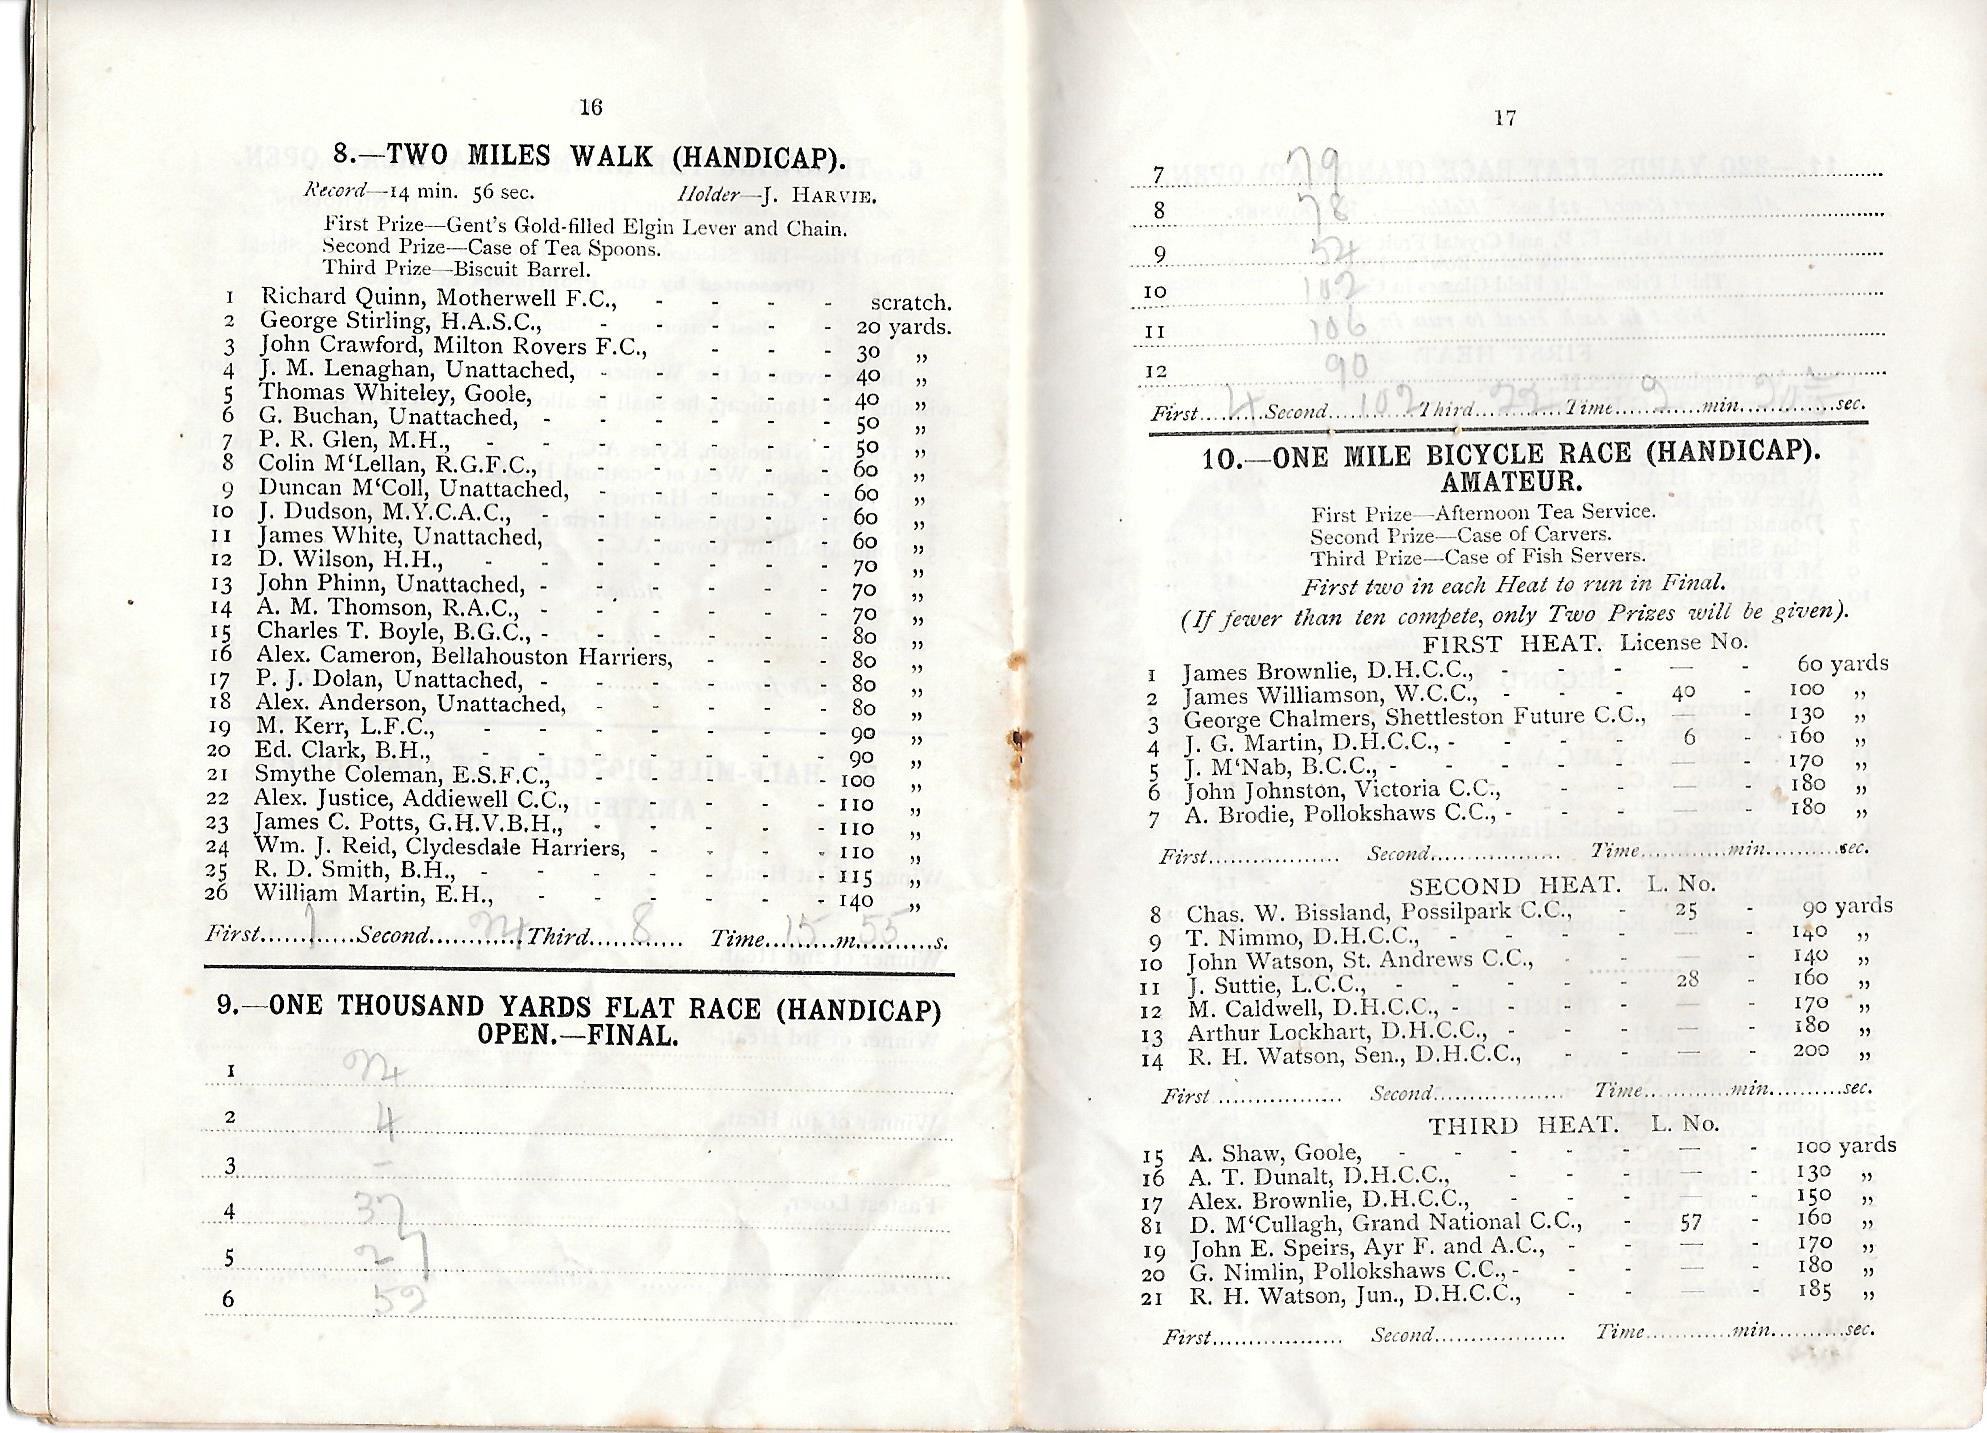 16
8.—TWO MILES WALK (HANDICAP).
Record—14 min. 56 sec. Holder—J. HARVIE.
First Prize—Gent's Gold-filled Elgin Lever and Chain.
Second Prize—Case of Tea Spoons.
Third Prize—Biscuit Barrel.
1 Richard Quinn, Motherwell F.C., - - - - scratch.
2 George Stirling, H.A.S.C., - - - - - 20 yards.
3 John Crawford, Milton Rovers F.C., - - - 30 „
4 J. M. Lenaghan, Unattached, - - - - - 40 „
5 Thomas Whiteley, Goole, - - - - - 40 „
6 G. Buchan, Unattached, - - - - - - 50 „
7 P. R. Glen, M.H., - - - - - - - 50 „
8 Colin M'Lellan, R.G.F.C., - - - - - 60 „
9 Duncan M'Coll, Unattached, - - - - - 60 „
10 J. Dudson, M.Y.C.A.C., - - - - - - 60 „
11 James White, Unattached, - - - - - 60 „
12 D. Wilson, H.H., - - - - - - - 70 „
13 John Phinn, Unattached, - - - - - - 70 „
14 A. M. Thomson, R.A.C., - - - - - - 70 „
15 Charles T. Boyle, B.G.C., - - - - - - 80 „
16 Alex. Cameron, Bellahouston Harriers, - - - 80 „
17 P. J. Dolan, Unattached, - - - - - - 80 „
18 Alex. Anderson, Unattached, - - - - - 80 „
19 M. Kerr, L.F.C., - - - - - - - 90 „
20 Ed. Clark, B.H., - - - - - - - 90 „
21 Smythe Coleman, E.S.F.C., - - - - - 100 „
22 Alex. Justice, Addiewell C.C., - - - - - 110 „
23 James C. Potts, G.H.V.B.H., - - - - - 110 „
24 Wm. J. Reid, Clydesdale Harriers, - - - - 110 „
25 R. D. Smith, B.H., - - - - - - - 115 „
26 William Martin, E.H., - - - - - - 140 „
First....1....Second....24....Third....8.... Time....15....m....55....s.
9.—ONE THOUSAND YARDS FLAT RACE (HANDICAP)
OPEN.—FINAL.
1 24
2 4
3 –
4 37
5 27
6 59
17
7 79
8 78
9 54
10 102
11 106
12 90
First....4....Second....102....Third....22....Time....2....min.........sec.
10.—ONE MILE BICYCLE RACE (HANDICAP).
AMATEUR.
First Prize—Afternoon Tea Service.
Second Prize—Case of Carvers.
Third Prize—Case of Fish Servers.
First two in each Heat to run in Final.
(If fewer than ten compete, only Two Prizes will be given).
FIRST HEAT. License No.
1 James Brownlie, D.H.C.C., - - - — - 60 yards
2 James Williamson, W.C.C., - - - 40 - 100 „
3 George Chalmers, Shettleston Future C.C., — - 130 „
4 J. G. Martin, D.H.C.C., - - - - 6 - 160 „
5 J. M'Nab, B.C.C., - - - - - — - 170 „
6 John Johnston, Victoria C.C., - - — - 180 „
7 A. Brodie, Pollokshaws C.C., - - - — - 180 „
First.................. Second.................. Time...........min..........sec.
SECOND HEAT. L. No.
8 Chas. W. Bissland, Possilpark C.C., - 25 - 90 yards
9 T. Nimmo, D.H.C.C., - - - - — - 140 „
10 John Watson, St. Andrews C.C., - - — - 140 „
11 J. Suttie, L.C.C., - - - - - 28 - 160 „
12 M. Caldwell, D.H.C.C., - - - - — - 170 „
13 Arthur Lockhart, D.H.C.C., - - - — - 180 „
14 R. H. Watson, Sen., D.H.C.C., - - — - 200 „
First .................. Second.................. Time...........min..........sec.
THIRD HEAT. L. No.
15 A. Shaw, Goole, - - - - - — - 100 yards
16 A. T. Dunalt, D.H.C.C., - - - — - 130 „
17 Alex. Brownlie, D.H.C.C., - - - — - 150 „
81 D. M'Cullagh, Grand National C.C., - 57 - 160 „
19 John E. Speirs, Ayr F. and A.C., - - — - 170 „
20 G. Nimlin, Pollokshaws C.C., - - - — - 180 „
21 R. H. Watson, Jun., D.H.C.C., - - — - 185 „
First.................. Second.................. Time...........min..........sec.